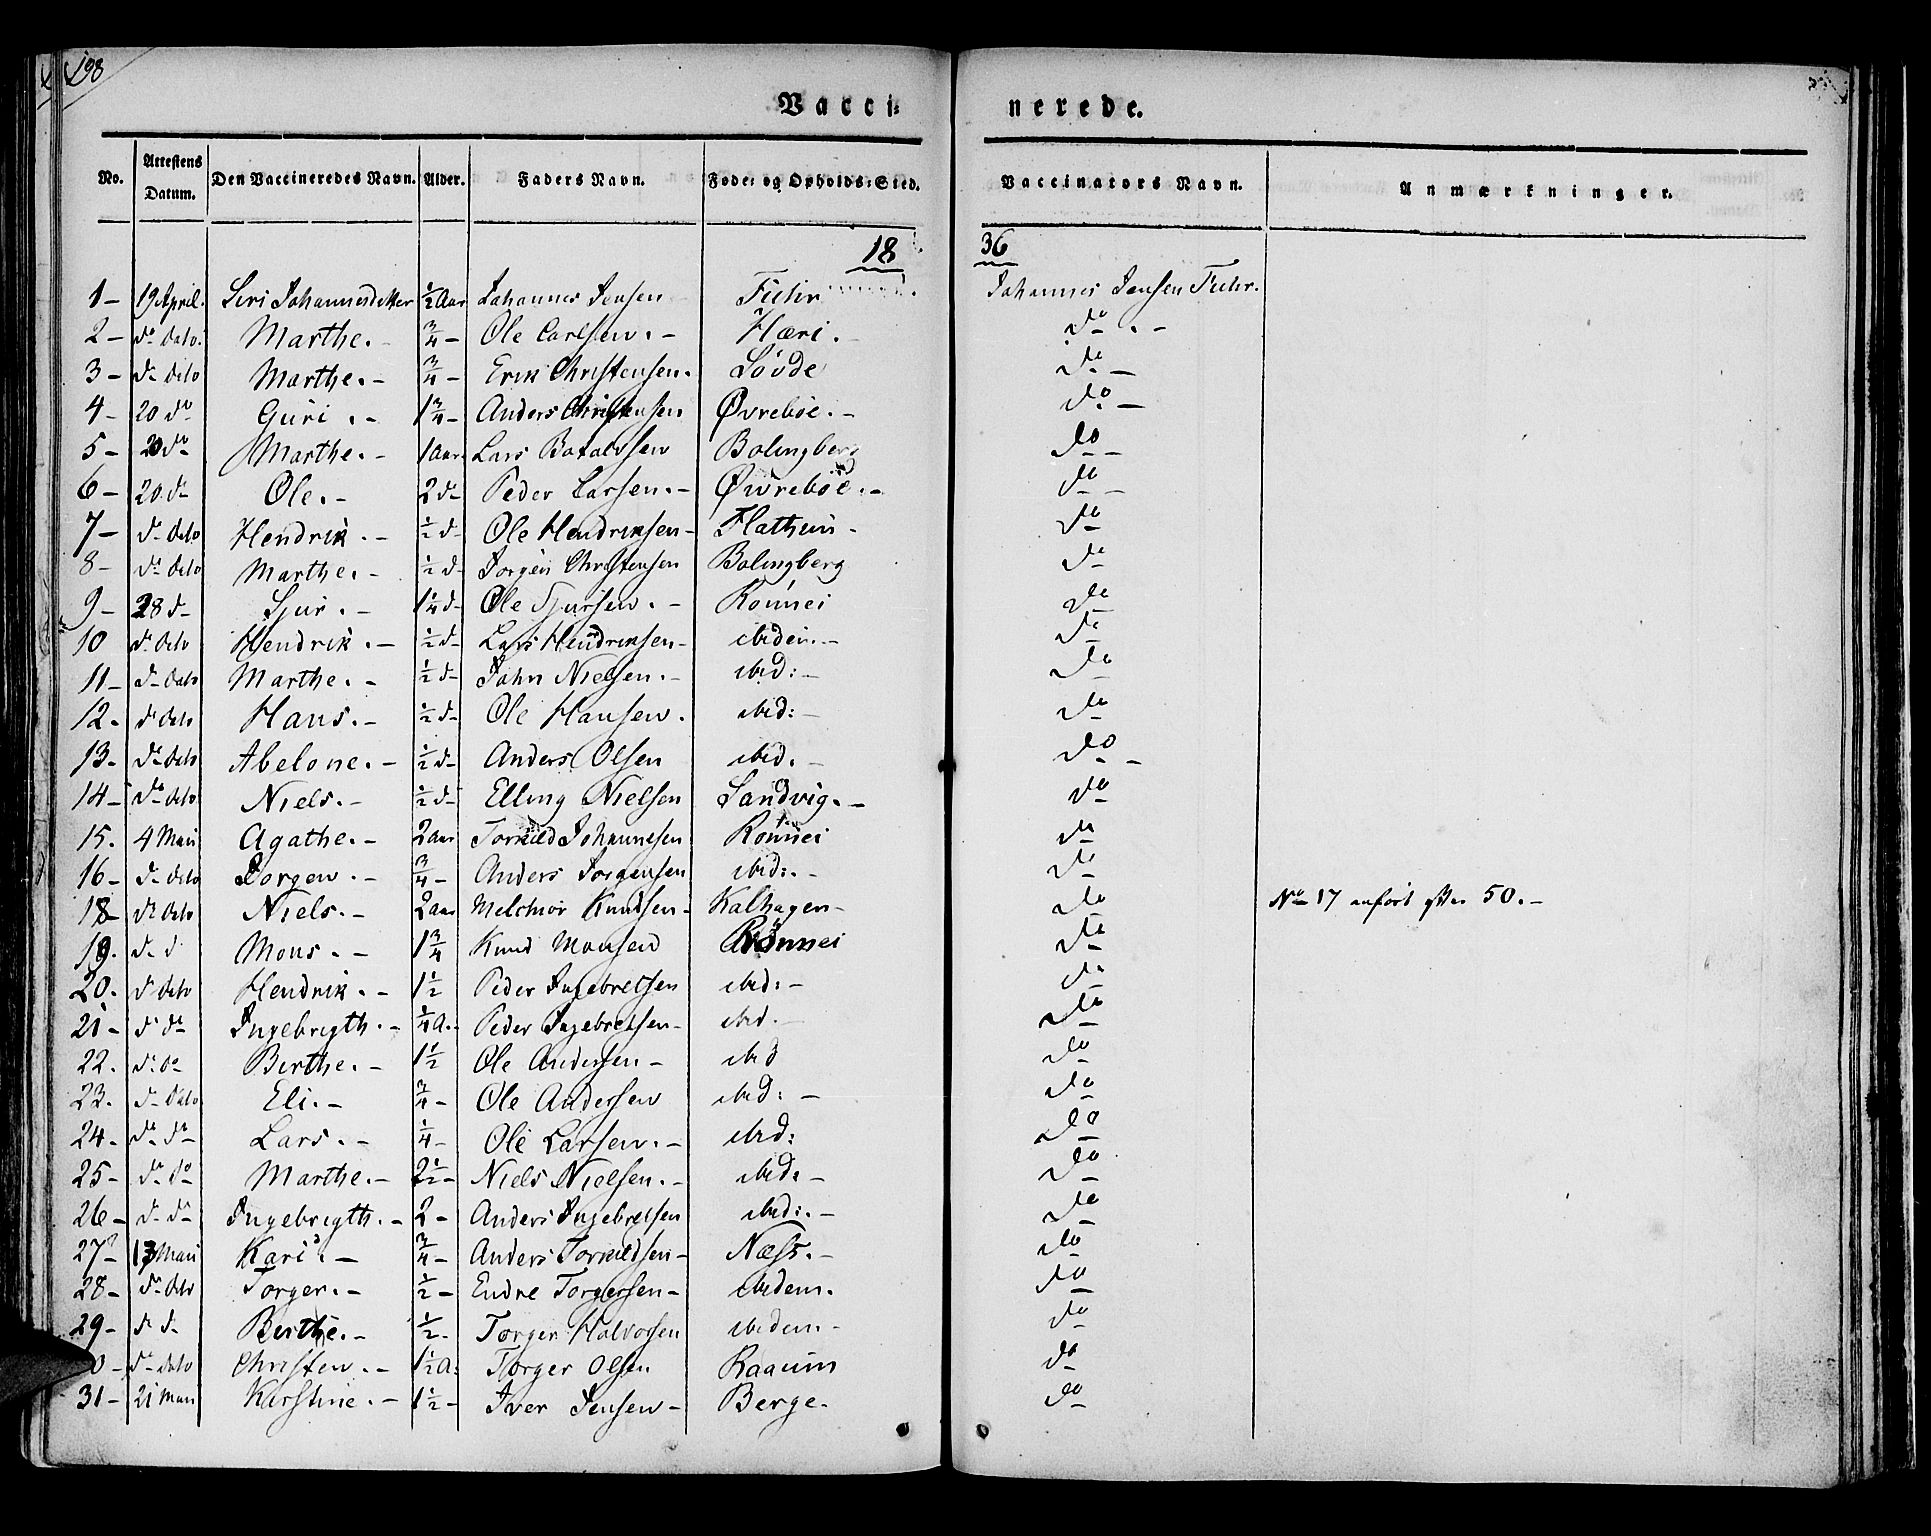 198
Vacci=
nerede.
No. Attestens Datum. Den Vaccineredes Navn. Alder. Faders Navn. Føde= og Opholds=Sted. Vaccinators Navn. Anmærkninger.
18 36
1 - 19 April. Siri Johannesdatter ½ Aar Johannes Jensen Fuhr Johannes Jensen Fuhr.
2 - do dato. Marthe. - ¾ - Ole Carlsen. - Hæri. - do. -
3 - do dato Marthe. - ¾ - Erik Christensen. Lövde do -
4 - 20 do Guri. - 1¾ - Anders Christensen Øvrebøe. - do. -
5 - 20 do Marthe. - 1 Aar. Lars Botolvsen Bolingberg do -
6 - 20 do Ole. - 2 do Peder Larsen. - Øvrebøe. - do -
7 - do dato Hendrik. - ½ d - Ole Hendriksen - Flathuin - do
8 - do dato Marthe. - ½ d - Jorgen Christensen Bolingberg do
9 - 28 d - Sjur. - 1¼ d - Ole Sjursen. - Rönnei do
10 do dato Hendrik. - ½ d - Lars Hendriksen - ibidem. - do
11 - do dato Marthe. - ½ d - John Nielsen. - ibid: - do
12. do dato Hans. - ½ d - Ole Hansen. ibid: - do
13 - do dato Abelone. - ½ d - Anders Olsen ibid. - do -
14 - do dato Niels. - ½ d - Elling Nielsen Sandvig. - do
15. 4 Maii Agathe. - 2 aar Torkild Johannesen Rönnei do
16 - do dato Jorgen. - ¾ - Anders Jorgensen ibid:. - do
18 - do dato Niels. - 2 aar Melchior Knudsen - Kalhagen - do No 17 anført efter 50. -
19. do d Mons. - 1¾ Knud Monsen Rønnei do
20. do dato Hendrik. - 1½ Peder Ingebretsen ibid: - do
21 - do do Ingebrigth. - ¼ A. - Peder Ingebretsen - ibid. - do
22. do do Birthe. - 1½ Ole Andersen - ibid do
23. do dato Eli. - ¾ - Ole Andersen ibid: - do
24 - do do Lars. - ¼ - Ole Larsen. - ibid: do
25 - do do Marthe. - 2½ - Niels Nielsen. - ibid: - do
26 - do do Ingebrigth. - 2 - Anders Ingebretsen ibid:. - do
27 13 Maii Kari. - ¾ - Anders Torkildsen - Næss. - do
28 - do dato Torger. - ½ - Endre Torgersen - ibidem. do
29 - do d - Berthe. - ½ - Torger Halvorsen ibidem - do
0 - do dato Christen. - 1½ A: Torger Olsen Raaum do
31 - 21 Maii Karstine. - 1½ - Iver Jensen - Berge. do